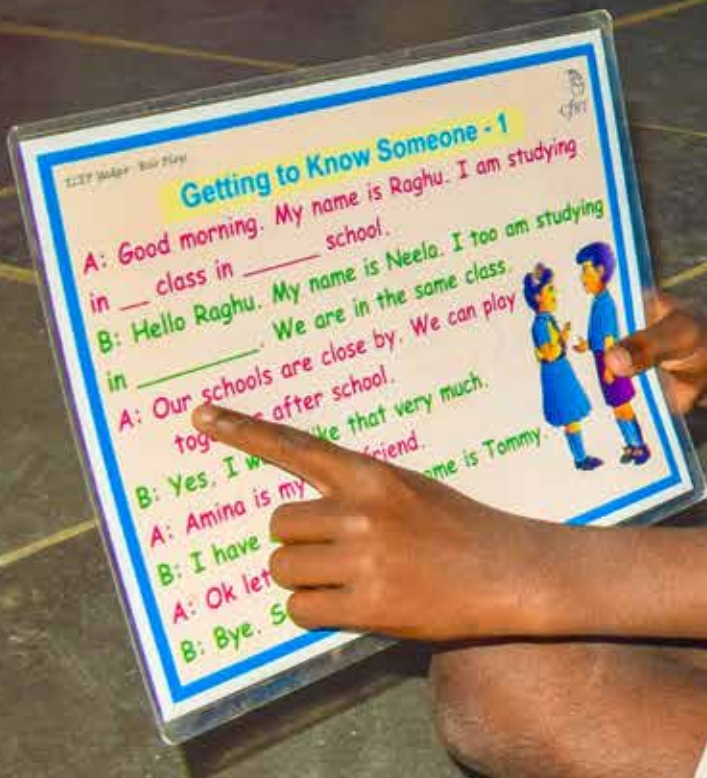 Getting to Know Someone - 1
A: Good morning. My name is Raghu. I am studying
in ___ class in _______ school.
B: Hello Raghu. My name is Neela. I too am studying
in __________. We are in the same class.
A: Our schools are close by. We can play
after school.
B: Yes, I like that very much.
A: Amina is my friend.
B: I have is Tommy.
A: Ok let
B: Bye.